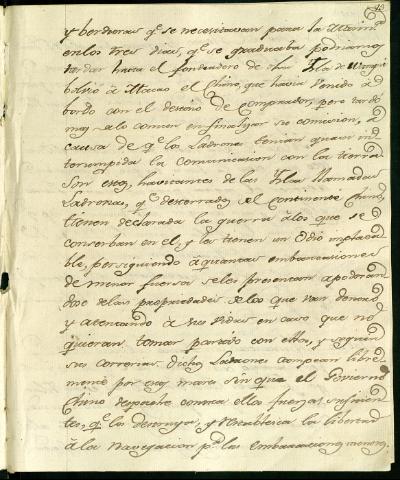 y verduras q.e se necesitavan para la
en los tres dias, q.e se graduaba podriamos
tardar hasta el fondeadero de
bolvio à Macao el Chino, que havia venido à
bordo con el destino de Comprador, pero tardó
muy a lo comun en finalizar su comision, à
causa de q.e los Ladrones tenian quasi in-
terrumpida la comunicacion con la tierra.
Son estos, havitantes de las Yslas llamadas
Ladronas, q.e desterrados del Continente Chino,
tienen declarada la guerra à los que se
conserban en el, y les tienen un Odio implaca-
ble, persiguiendo à quantas embarcaciones
de menor fuersa se les presentan apoderan-
dose de las propriedades de los que van dentro
y atentando à sus vidas en caso que no
quieran tomar partido con ellos, y seguir
sus correrias. Dichos Ladrones campean libre-
mente por estos mares sin que el Govierno
Chino despache contra ellos fuerzas suficien-
tes, q.e los destruya, y restablesca la libertad
à la navegacion p.a las embarcaciones